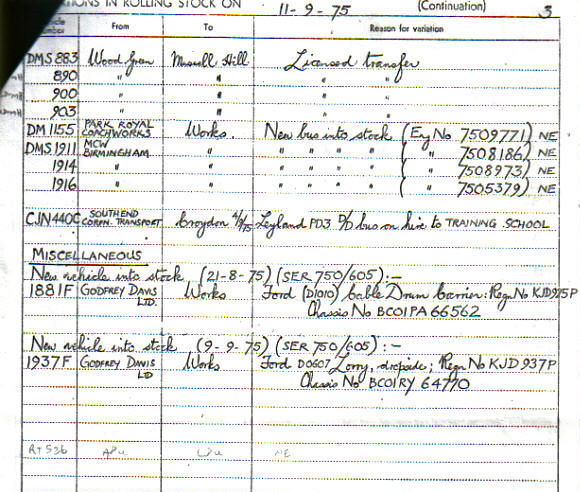 ATIONS IN ROLLING STOCK ON 11-9-75 (Continuation) 3
icle Number From To Reason for variation
DMS 883 Wood Green Muswell Hill Licensed transfer
890 " " " "
900 " " " "
903 " " " "
DM 1155 PARK ROYAL COACHWORKS Works. New bus into stock (Eng No 7509771) NE
DMS 1911 MCW BIRMINGHAM " " " " " ( " 7508186) NE
1914 " " " " " " ( " 7508973) NE
1916 " " " " " " ( " 7505379) NE
CJN 440C SOUTHEND CORPN. TRANSPORT Croydon Leyland PD3 O/D bus on hire to TRAINING SCHOOL
MISCELLANEOUS
New vehicle into stock (21-8-75) (SER 750/605):-
1881F GODFREY DAVIS LTD. Works Ford (D1010) Cable Drum Carrier: Regn. No KJD 925P
Chassis No BC01PA 66562
New vehicle into stock (9-9-75) (SER 750/605):-
1937F GODFREY DAVIS LTD Works Ford D0607 Lorry, dropside; Regn No KJD 937P
Chassis No BC01RY 64770
RT 536 NE